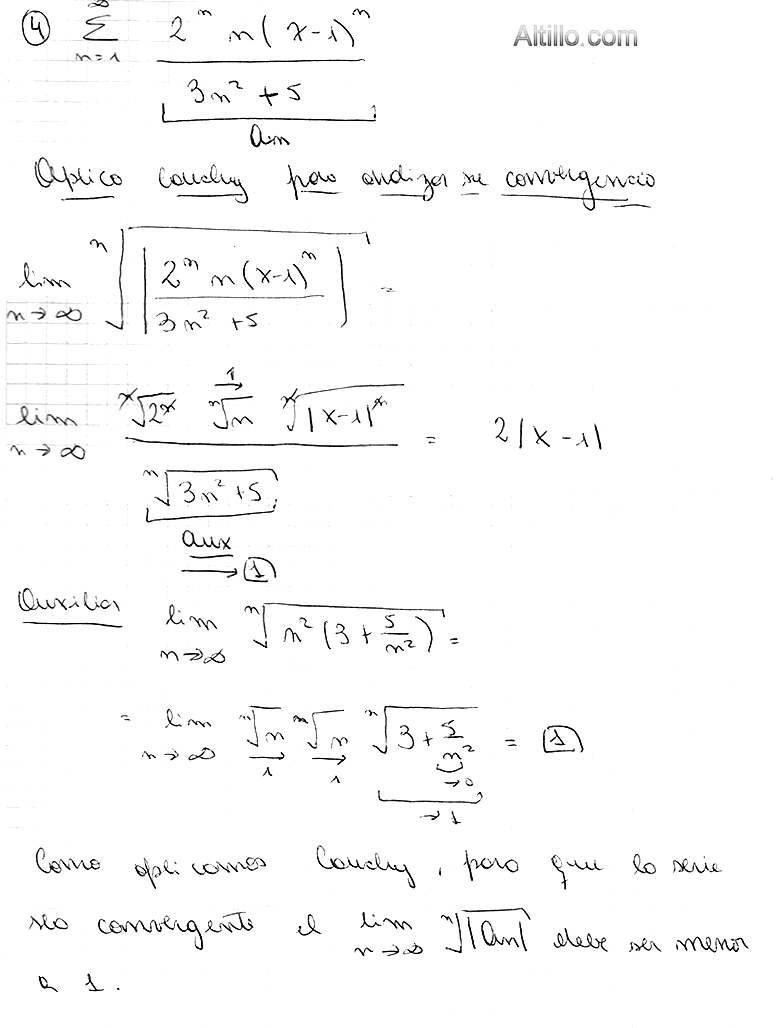 ④ ∞ Σ n=1 2^n n(x-1)^n / 3n² + 5 Altillo.com
an
Aplico Cauchy para analizar su convergencia
lim n→∞ ⁿ√|2^n n(x-1)^n / 3n² + 5| =
lim n→∞ ⁿ√2^n ⁿ√n →1 ⁿ√|x-1|^n / ⁿ√3n²+5 = 2|x-1|
aux
→ 1
Auxiliar lim n→∞ ⁿ√n²(3 + 5/n²) =
= lim n→∞ ⁿ√n →1 ⁿ√n →1 ⁿ√3 + 5/n² = 1
→0
→1
Como aplicamos Cauchy, para que la serie
sea convergente el lim n→∞ ⁿ√|an| debe ser menor
a 1.